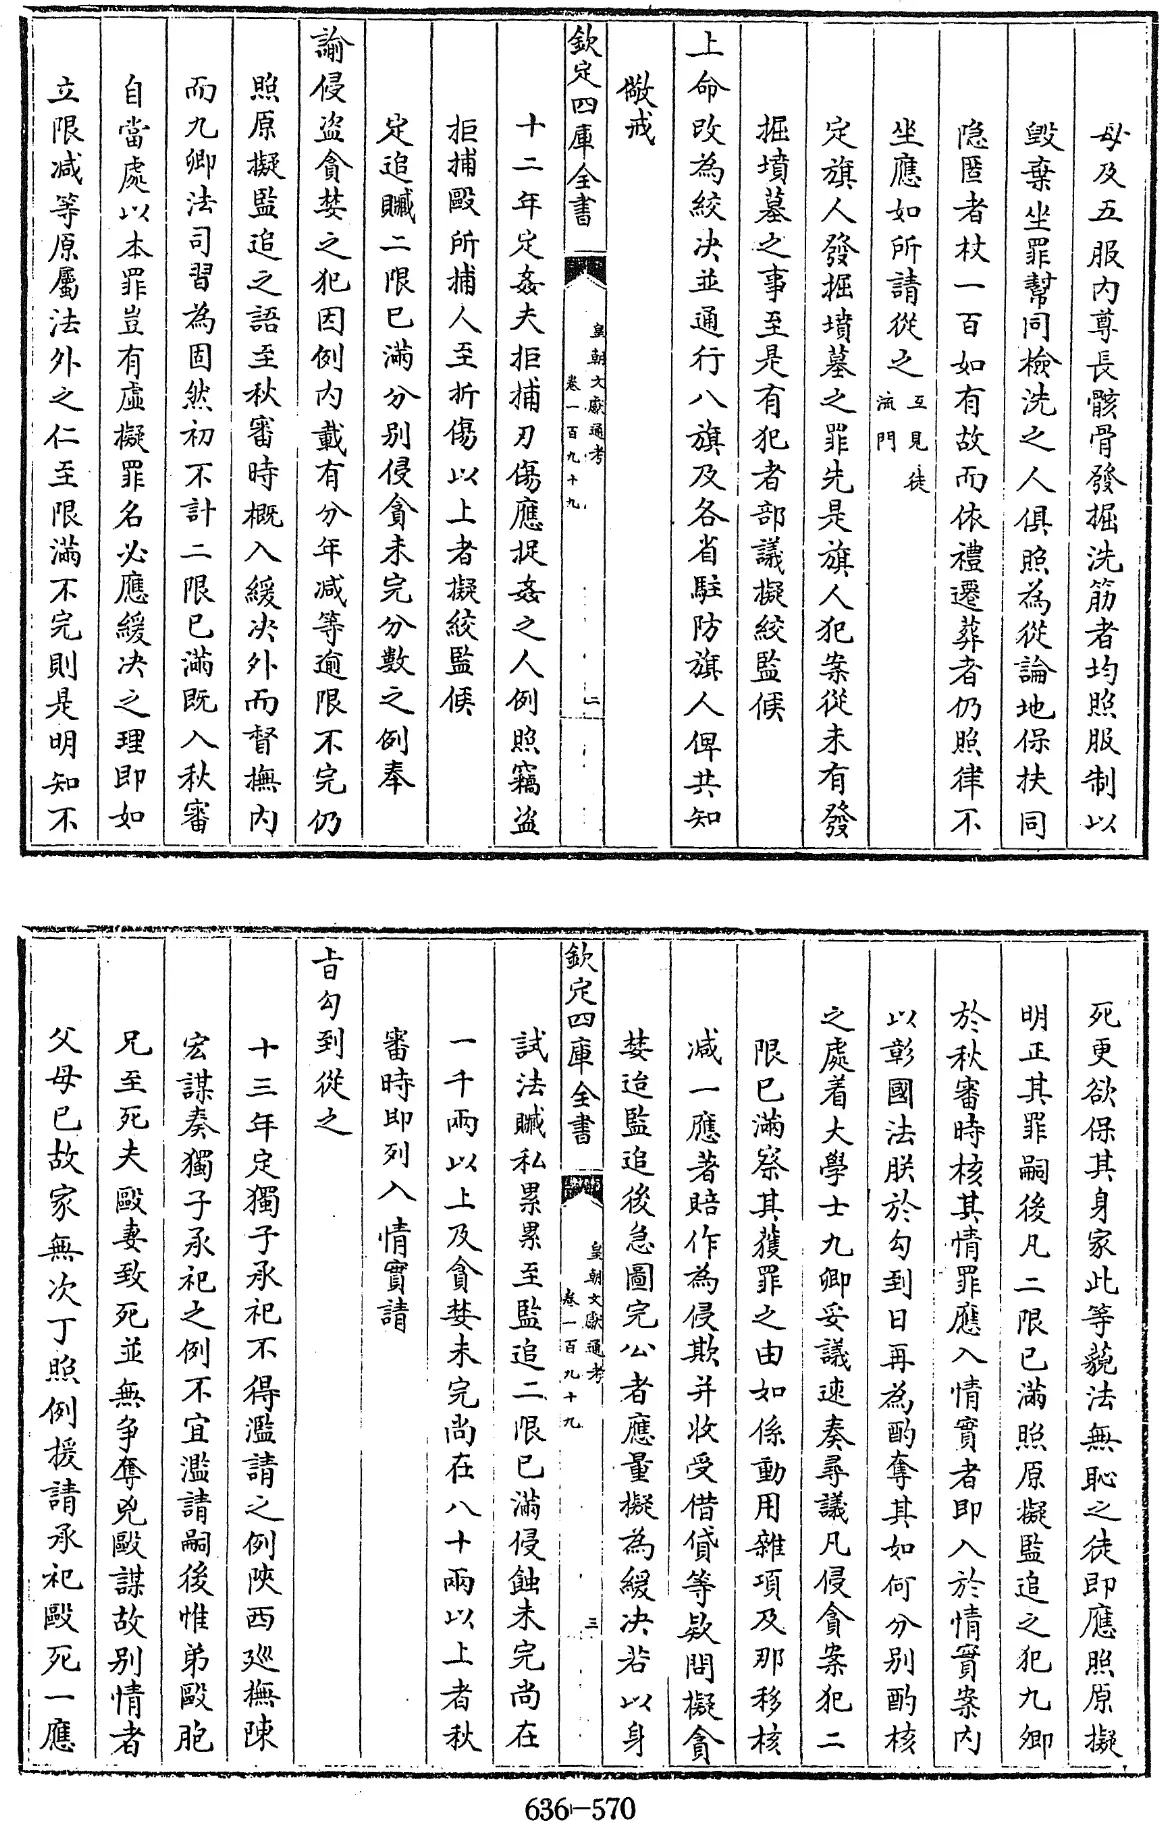 母及五服内尊長骸骨發掘洗筋者均照服制以
毀棄坐罪幫同檢洗之人俱照為從論地保扶同
隐匿者杖一百如有故而依禮遷葬者仍照律不
坐應如所請從之互見徒流門
定旗人發掘墳墓之罪先是旗人犯案從未有發
掘墳墓之事至是有犯者部議擬絞監候
上命改為絞決並通行八旗及各省駐防旗人俾共知
儆戒
欽定四庫全書
皇朝文獻通考
卷一百九十九
二
十二年定姦夫拒捕刃傷應捉姦之人例照竊盗
拒捕毆所捕人至折傷以上者擬絞監候
定追贓二限已滿分别侵貪未完分數之例奉
諭侵盗貪婪之犯因例内載有分年減等逾限不完仍
照原擬監追之語至秋審時概入緩決外而督撫内
而九卿法司習為固然初不計二限已滿既入秋審
自當處以本罪豈有虚擬罪名必應緩决之理即如
立限減等原屬法外之仁至限滿不完則是明知不
死更欲保其身家此等藐法無恥之徒即應照原擬
明正其罪嗣後凡二限已滿照原擬監追之犯九卿
於秋審時核其情罪應入情實者即入於情實案内
以彰國法朕於勾到日再為酌奪其如何分别酌核
之處着大學士九卿妥議速奏尋議凡侵貪案犯二
限已滿察其獲罪之由如係動用雜項及那移核
減一應著賠作為侵欺并收受借貸等欵問擬貪
婪迨監追後急圖完公者應量擬為緩决若以身
欽定四庫全書
皇朝文獻通考
卷一百九十九
三
試法贓私累累至監追二限已滿侵蝕未完尚在
一千兩以上及貪婪未完尚在八十兩以上者秋
審時即列入情實請
旨勾到從之
十三年定獨子承祀不得濫請之例陜西廵撫陳
宏謀奏獨子承祀之例不宜濫請嗣後惟弟毆胞
兄至死夫毆妻致死並無争奪兇毆謀故别情者
父母已故家無次丁照例援請承祀毆死一應
636-570